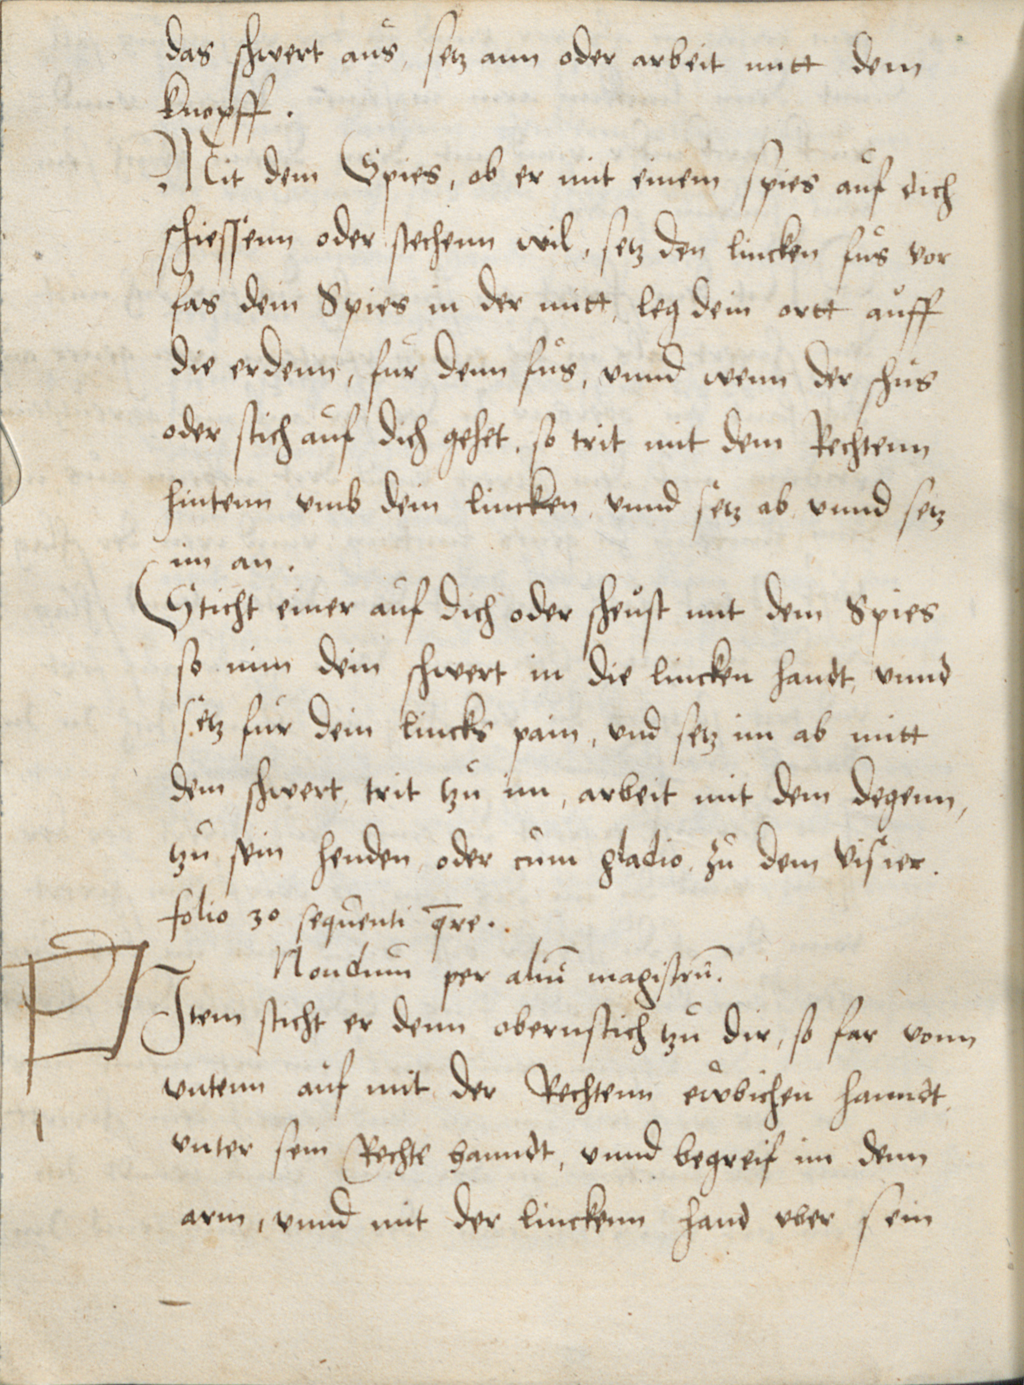 das schwert aus, setz ann oder arbeit mitt dem
knopff.
Mit dem Spies, ob er mit einem spies auf dich
schiessenn oder stechenn wil, setz den lincken fus vor
fas dein Spies in der mitt, leg dein ortt auff
die erdenn, fur denn fus, vnnd wenn der schus
oder stich auf dich gehet, so trit mit dem Rechtenn
hintenn vmb dein lincken, vnnd setz ab, vnnd setz
im an.
Sticht einer auf dich oder scheust mit dem Spies
so nim dein schwert in die lincken handt, vnnd
setz fur dein lincks pain, vnd setz im ab mitt
dem schwert, trit tzu im, arbeit mit dem degenn,
tzu sein henden, oder cum gladio, zu dem visier.
folio 30 sequenti q̄re.
Nondum per aliū magistrū.
Item sticht er denn obernstich tzu dir, so far vonn
vntenn auf mit der Rechtenn ewbichen hanndt,
vnter sein Rechte hanndt, vnnd begreif im denn
arm, vnnd mit der linckenn hand vber sein